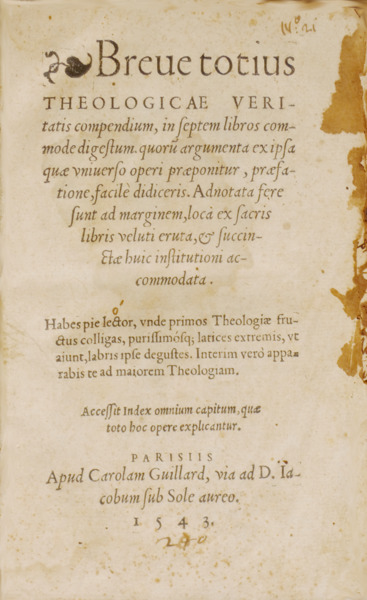 Breue totius
THEOLOGICAE VERI-
tatis compendium, in septem libros com-
mode digestum. quorũ argumenta ex ipsa
quæ vniuerso operi præponitur, præfa-
tione, facilè didiceris. Adnotata fere
sunt ad marginem, locà ex sacris
libris veluti eruta, & succin-
ctæ huic institutioni ac-
commodata.
Habes pie lector, vnde primos Theologiæ fru-
ctus colligas, purissimósq; latices extremis, vt
aiunt, labris ipse degustes. Interim verò appa-
rabis te ad maiorem Theologiam.
Accessit Index omnium capitum, quæ
toto hoc opere explicantur.
PARISIIS
Apud Carolam Guillard, via ad D. Ia-
cobum sub Sole aureo.
1543.